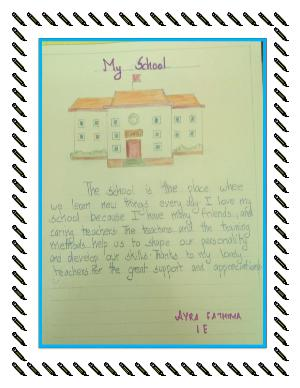 My School
The school is the place where
we learn new things every day. I love my
school because I have many friends, and
caring teachers. The teachers and the training
methods help us to shape our personality
and develop our skills. Thanks to my lovely
teachers for the great support and appreciation
AYRA FATHIMA
1 E